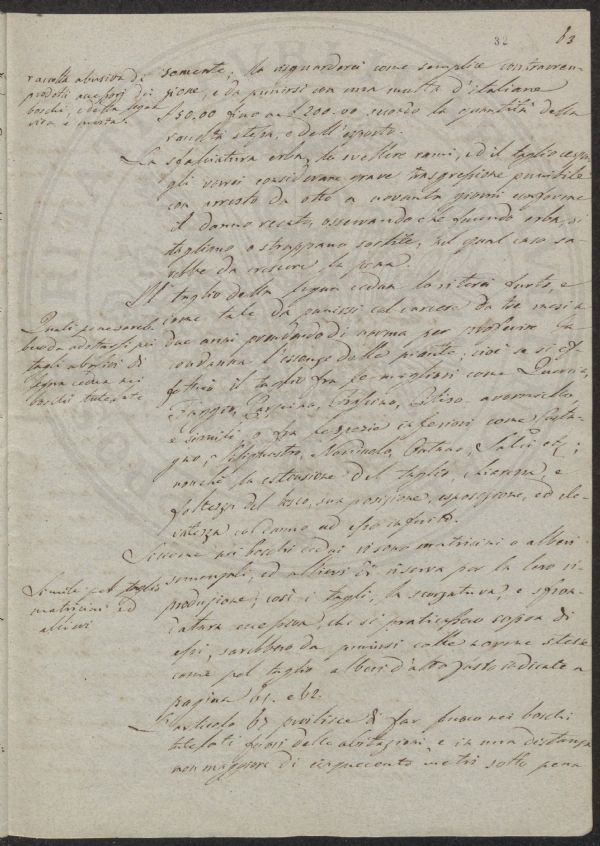 32
63
raccolta abusiva di
prodotti accessorj dei
boschi, e della legna
viva e morta.
samente, la riguarderei come semplice contravven-
zione, e da punirsi con una multa d'italiane
£50.00 fino a £200.00 secondo la quantità della
raccolta stessa, e dell'esporto.
La sfalciatura erba, lo svellere rami, ed il taglio cespu-
gli verrei considerare grave trasgressione punibile
con arresto da otto a novanta giorni conforme
il danno recato, osservando che facendo erba, si
tagliano o strappano sortite, nel qual caso sa-
rebbe da crescere la pena.
Il taglio della legna cedua lo riterrei furto, e
come tale da punirsi col carcere da tre mesi a
due anni prendendo di norma per proferire la
condanna l'essenza delle piante, cioè se si ef-
fettuò il taglio fra le migliori come Quercia,
Faggio, Frassino, Carpino,
e simili, o fra le specie inferiori come Casta-
gno, Nocciuolo, Ontano, Salici ecc;
nonchè la estensione del taglio, chiarezza, e
foltezza del bosco, sua posizione, esposizione, ed ele-
vatezza col danno ad esso inferito.
Quali pene sareb-
bero da adottarsi pei
tagli abusivi di
legna cedua nei
boschi tutelati
Siccome nei boschi cedui vi sono matricini o alberi
semenzali, ed allievi di riserva per la loro ri-
produzione, così i tagli, la scorzatura, e sfron-
datura eccessiva, che si praticassero sopra di
essi, sarebbero da punirsi colle norme stesse
come pel taglio alberi d'alto fusto indicate a
pagina 61. e 62.
Simile pel taglio
matricini ed
allievi
L'articolo 67 proibisce di far fuoco nei boschi
tutelati fuori delle abitazioni, e in una distanza
non maggiore di cinquecento metri sotto pena